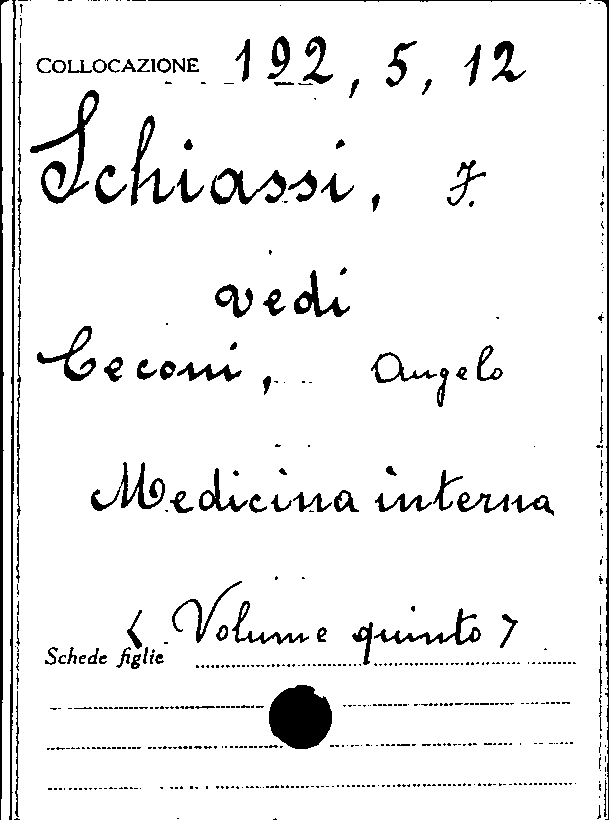 COLLOCAZIONE 192, 5, 12
Schiassi, F.
vedi
Ceconi, Angelo
Medicina interna
< Volume quinto >
Schede figlie